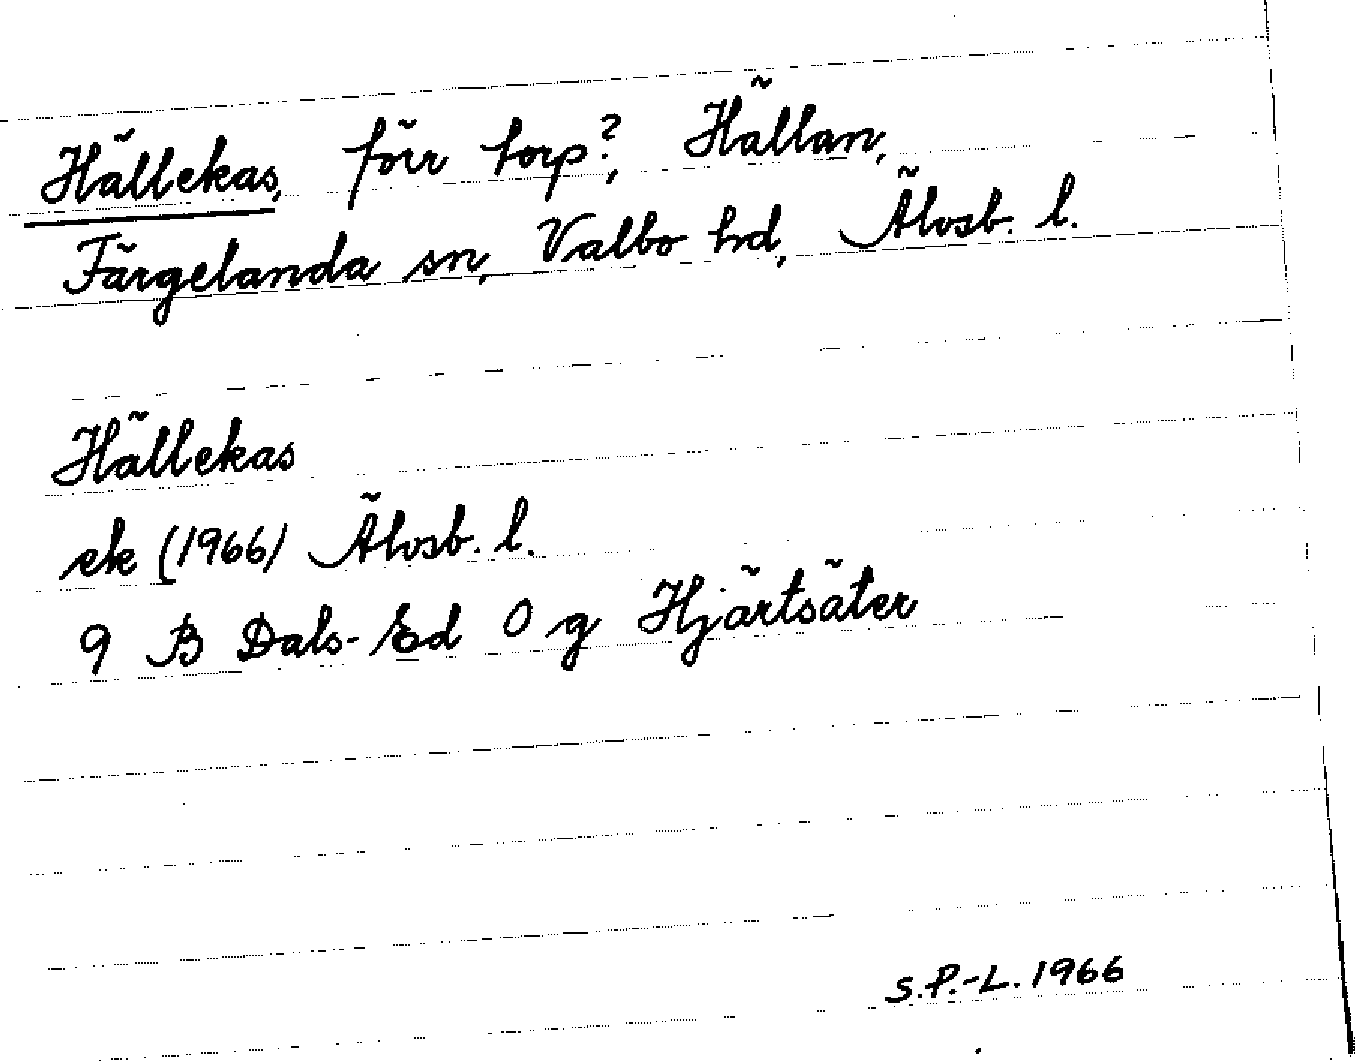 Hällekas, förr torp?, Hällan,
Färgelanda sn, Valbo hd, Älvsb. l.
Hällekas
ek (1966) Älvsb. l.
9 B Dals-Ed 0 g Hjärtsäter
S.P.-L. 1966